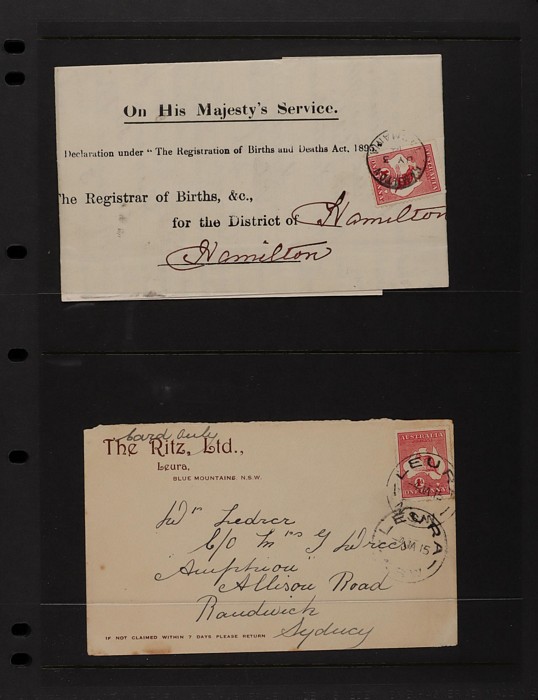 On His Majesty's Service.
Declaration under "The Registration of Births and Deaths Act, 1895
The Registrar of Births, &c.,
for the District of Hamilton
Hamilton
AUSTRALIA
Card Only
The Ritz, Ltd.,
Leura,
BLUE MOUNTAINS N.S.W.
AUSTRALIA
LEURA
LEURA
JA 15
Wm Ledrer
C/O Mrs G
"Amphion"
Allison Road
Randwick
Sydney
IF NOT CLAIMED WITHIN 7 DAYS PLEASE RETURN